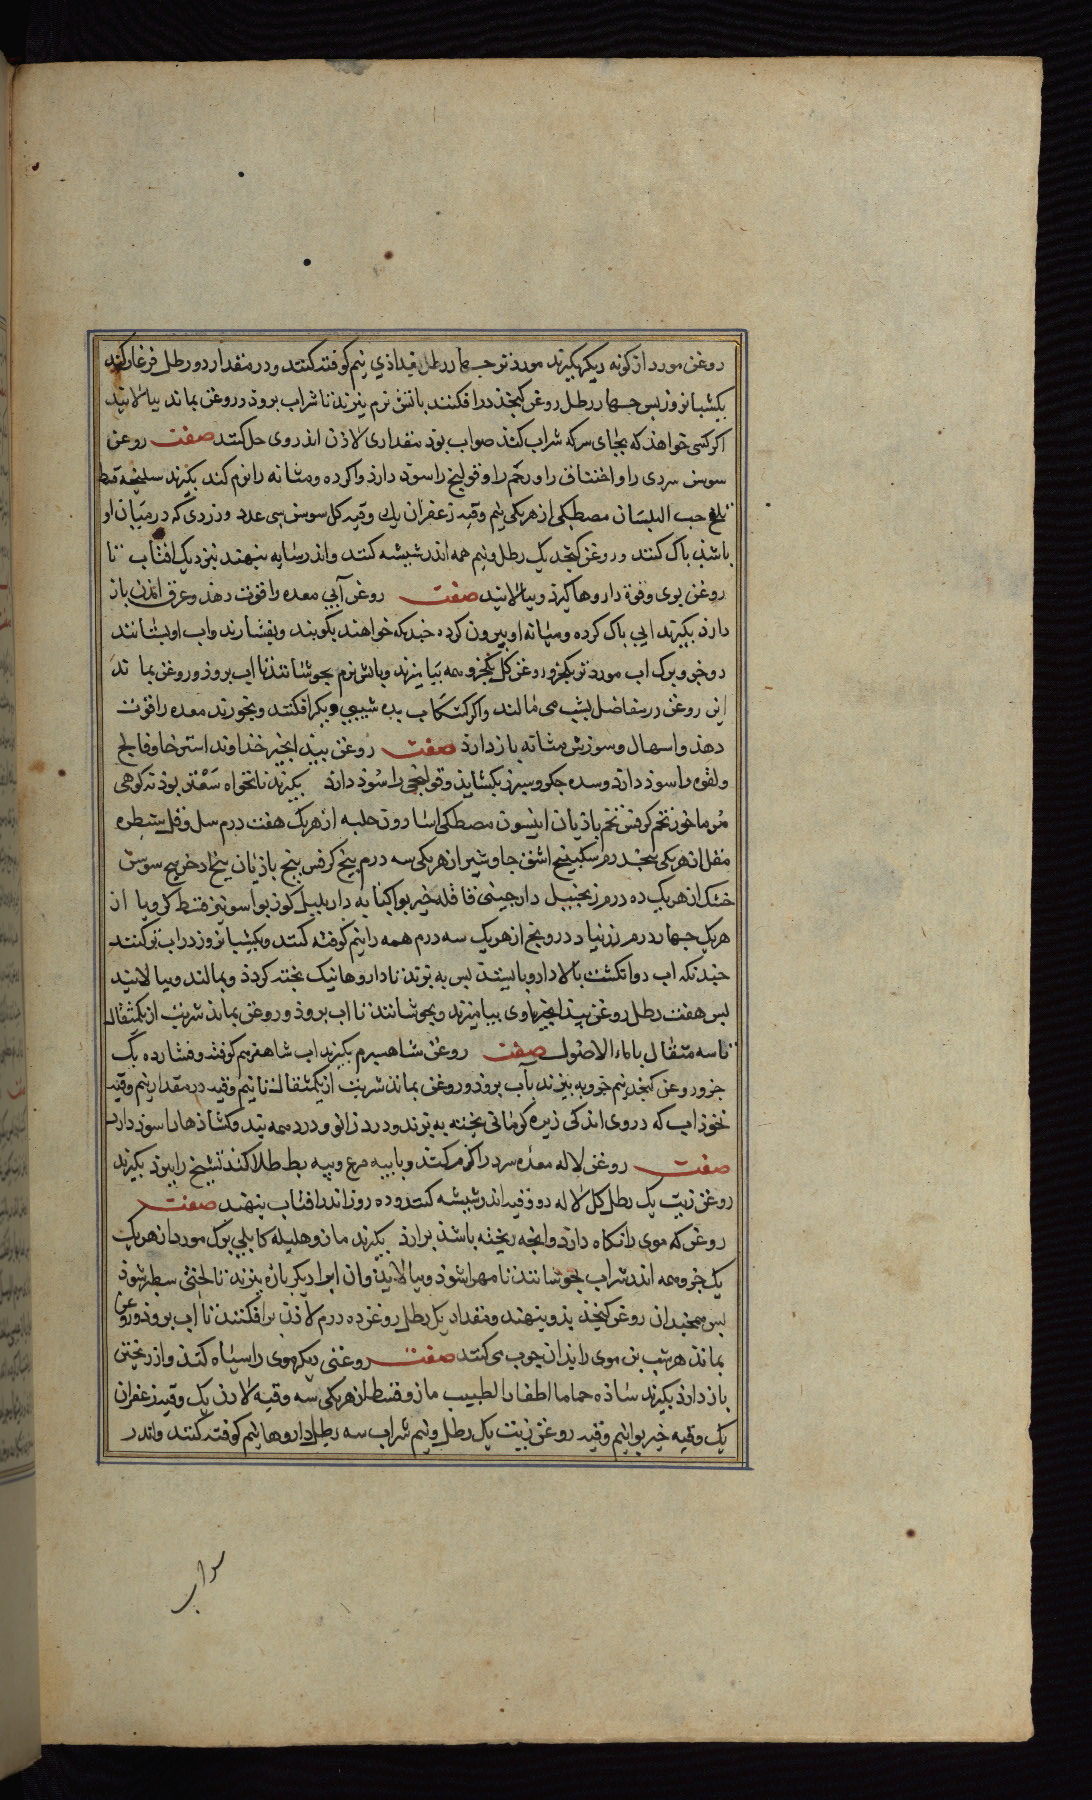 روغن مورد از کونه دیکر بکیرند مورد تر چهار رطل بغداذی نیم کوفته کنند و در مقدار دو رطل فرغار کنند
یکشبانروز بس چهار رطل روغن کنجذ درافکنند باتش نرم بپزند تا شراب بروذ و روغن بماند ببالایند
اکر کسی خواهذ که بجای سرکه شراب کند صواب بوذ مقداری لاذن اندر وی حل کنند صفت روغن
سوسن سردی را و اختناق را و رحم را و قولنج را سوذ دارذ و اکرده و مثانه را نرم کند بکیرند سلیخه قسط
تلخ حب البلسان مصطکی از هریکی نیم وقیه زعفران یک وقیه کل سوسن سی عدد و زردی که در میان او
باشذ باک کنند و روغن کنجد یک رطل و نیم همه اندر شیشه کنند و اندر سایه بنهند نزدیک افتاب تا
روغن بوی و قوة داروها کیرذ و ببالایند صفت روغن آبی معده را قوت دهذ و عرق امدن باز
دارذ بکیرند ابی باک کرده و میانه او بیرون کرده چندانکه خواهند بکوبند و بفشارند و اب او بستانند
دو جزو و برک اب مورد تر یکجزو روغن کل یکجزو همه بیامیزند و باتش نرم بجوشانند تا اب بروذ و روغن بماند
این روغن در مفاصل بشب می مالند و اکر کشکاب بده شیبی و بکرافکنند و بخورند معده را قوت
دهذ و اسهال و سوزش مثانه باز دارذ صفت روغن بیذ انجیر خذاوند استرخا و فالج
و لقوه را سوذ دارذ و سده جکر و سبرز بکشاید و قولنجی را سوذ دارذ بکیرند نانخواه سعتر بوذنه کوهی
مرماخوز تخم کرفس تخم باذیان انیسون مصطکی اسارون حلبه از هر یک هفت درم سل و فل ستطره
مقل از هریکی بنجدرم سکبینج اشق جاوشیر از هریکی سه درم بیخ کرفس بیخ باذیان بیخ اذخر بیخ سوسن
خشک از هریک ده درم زنجبیل دارجینی قاقله خیربوا کبابه دار بلبل کوز بوا سونیز قسط کرویا از
هریک چهار درم زرنباد درونج از هریک سه درم همه را نیم کوفته کنند و یکشبانروز در اب تر کنند
چندانکه اب دو انکشت بالا دارو بایستذ بس به بزند تا داروها نیک بخته کردذ و بمالند و ببالایند
بس هفت رطل روغن بیذانجیر باوی بیامیزند و بجوشانند تا اب بروذ و روغن بماند شربت از یکمثقال
تا سه مثقال با ماء الاصول صفت روغن شاهسبرم بکیرند اب شاهسبرم کوفته و فشارده یک
جزو روغن کنجد نیم جزو به بزند تا آب بروذ و روغن بماند شربت از یکمثقال تا نیم وقیه در مقدار نیم وقیه
خوذ اب که در وی اندکی زیره کرمانی بخته به بزند و درد زانو و درد همه بندکشاذها را سوذ دارد
صفت روغن لاله معده سرد را کرم کند و با بیه مرغ و بیه بط طلا کنند تشنج را ببرذ بکیرند
روغن زیت یک رطل کل لاله دو وقیه اندر شیشه کنند و ده روز اندر افتاب بنهند صفت
روغن که موی را نکاه دارد و انجه ریخته باشذ برارذ بکیرند مازو هلیله کابلی برک مورد از هریک
یک جزو همه اندر شراب بجوشانند تا مهرا شوذ و ببالایند و ان ابرا دیکر باره ببزند تا لختی سطبر شوذ
بس همچندان روغن کنجذ بذو بنهند و بمقدار یک رطل روغن ده درم لاذن برافکنند تا اب بروذ و روغن
بماند هر شب بن موی را بذان چوب می کنند صفت روغنی دیکر موی را سیاه کند و از ریختن
باز دارذ بکیرند ساذه حماما اظفار الطیب مازو قسط از هریکی سه وقیه لاذن یک وقیه زعفران
یک وقیه خیربوا نیم وقیه روغن زیت یک رطل و نیم شراب سه رطل داروها نیم کوفته کنند و اندر